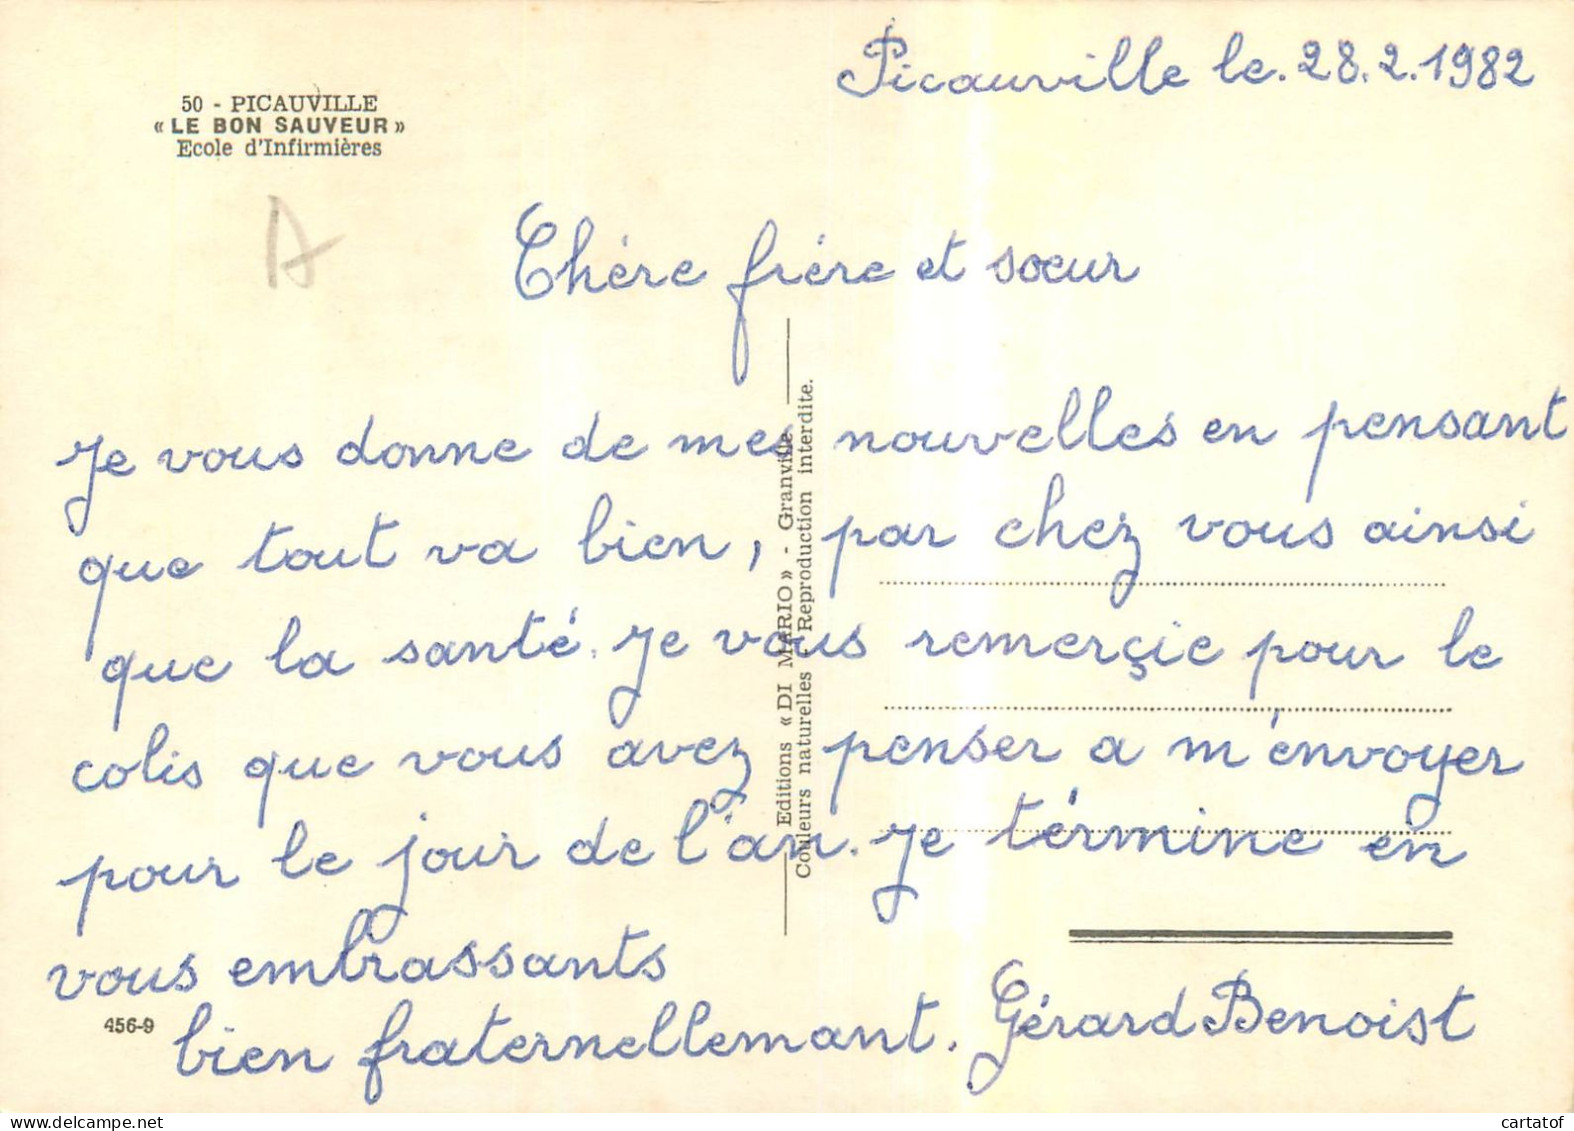 Picauville le. 28.2.1982
50 - PICAUVILLE
« LE BON SAUVEUR »
Ecole d'Infirmières
A
Chére frére et soeur
Je vous donne de mes nouvelles en pensant
que tout va bien, par chez vous ainsi
que la santé. Je vous remerçie pour le
colis que vous avez penser a m'énvoyer
pour le jour de l'an. Je términe en
vous embrassants
bien fraternellemant. Gérard Benoist
456-9
Editions « DI MARIO » - Granville
Couleurs naturelles - Reproduction interdite.
cartatof